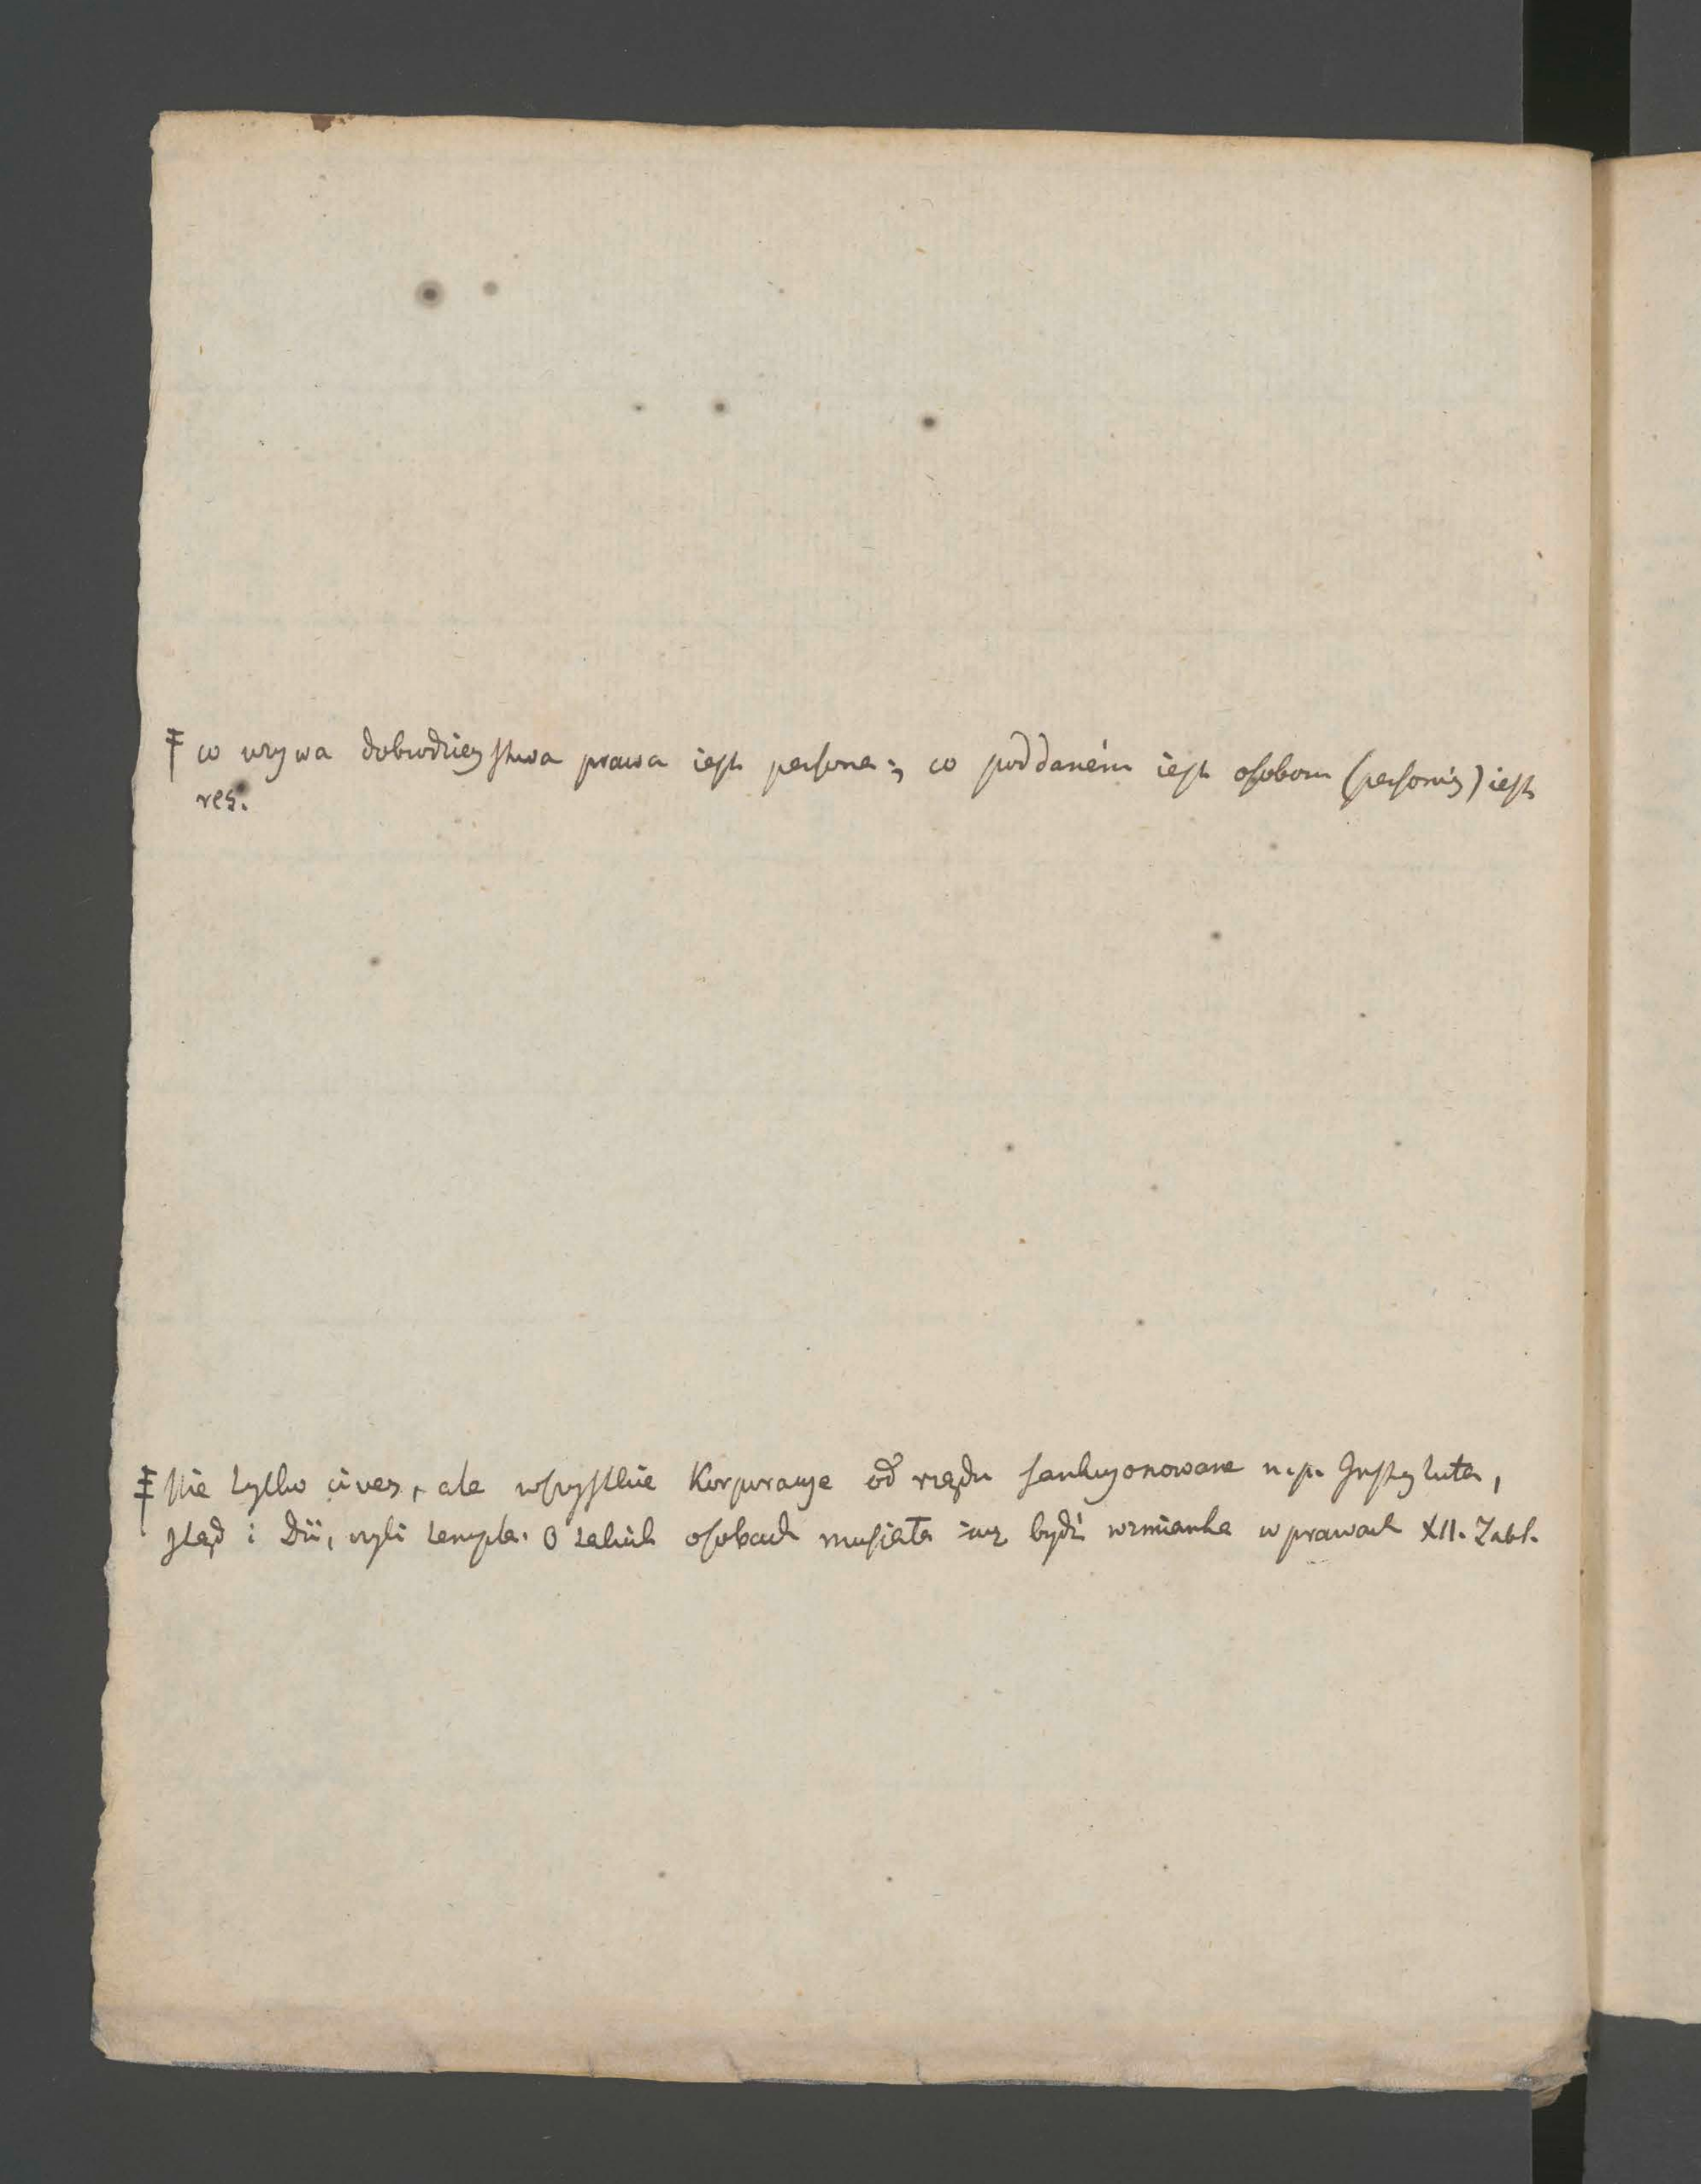 ‡ co używa dobrodzieystwa prawa iest persona; co poddaném iest osobom (personis) iest
res.
‡ Nie tylko cives, ale wszystkie Korporacye od rządu sankcyonowane n.p. Instytuta,
ztąd i Dii, czyli templa. O takich osobach musiała iuż bydź wzmianka w prawach XII. Tabl.